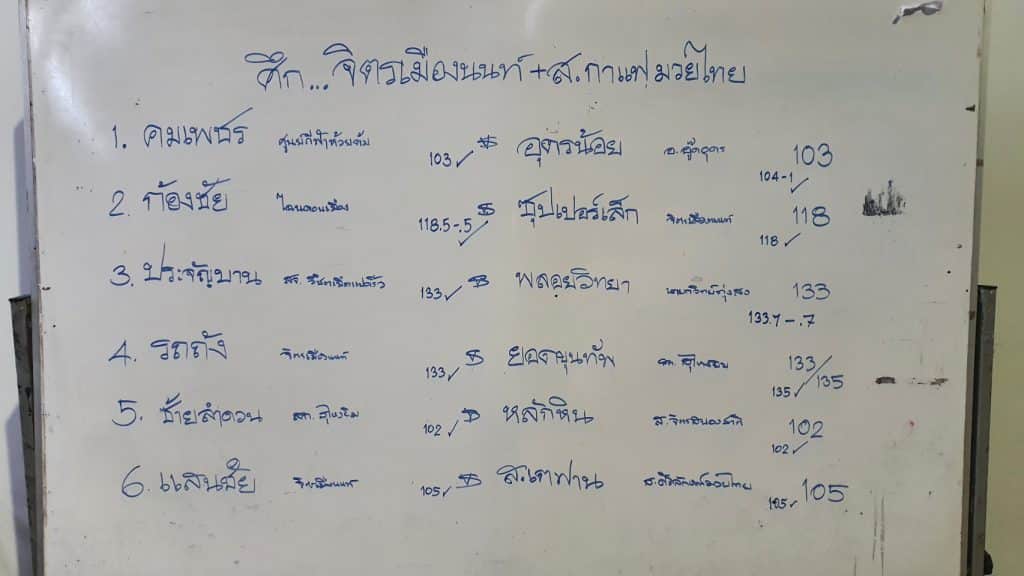 ศึก...จิตรเมืองนนท์+ส.กาแฟมวยไทย
1. คมเพชร ศูนย์กีฬาห้วยต้ม 103 ✓ อุดรน้อย อ.อู๊ดอุดร 103
104-1 ✓
2. ก้องชัย 118.5-.5 ✓ ซุปเปอร์เล็ก จิตรเมืองนนท์ 118
118 ✓
3. ประจัญบาน 133 ✓ พลอยวิทยา 133
133.7-.7
4. รถถัง จิตรเมืองนนท์ 133 ✓ ยอดขุนทัพ 133/135
135 ✓
5. ซ้ายลำดวน 102 ✓ หลักหิน 102
102 ✓
6. แสนชัย จิตรเมืองนนท์ 105 ✓ สเตฟาน 105
105 ✓